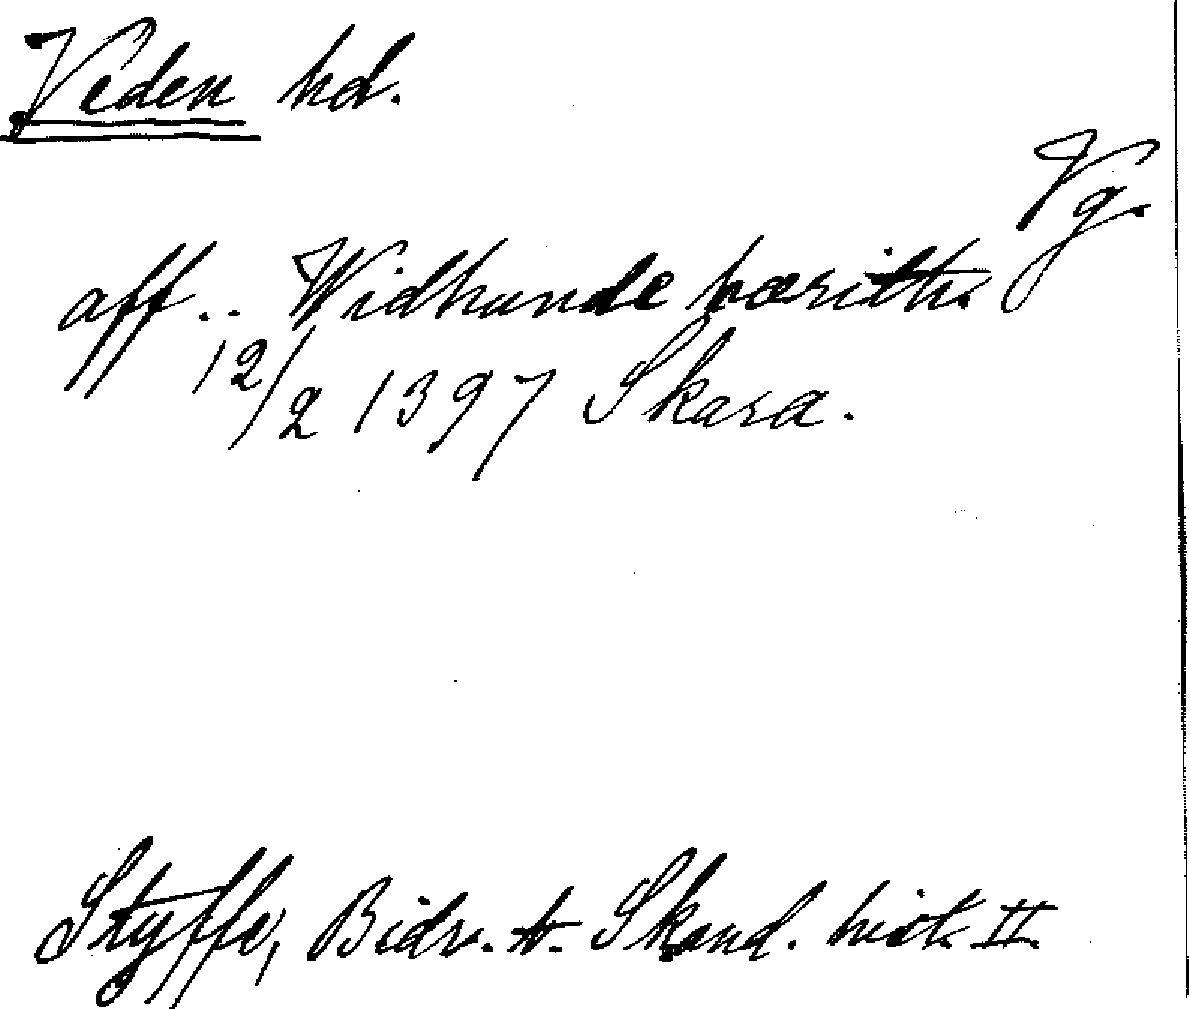 Veden hd.
Vg.
aff .. Widhunde hærith.
12/2 1397 Skara.
Styffe, Bidr. t. Skand. hist. II.